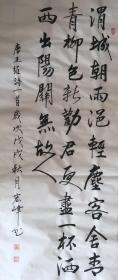 渭城朝雨浥輕塵客舍青
青柳色新勸君更盡一杯酒
西出陽關無故人
唐王維詩一首歲次戊戌秋月宏峰书